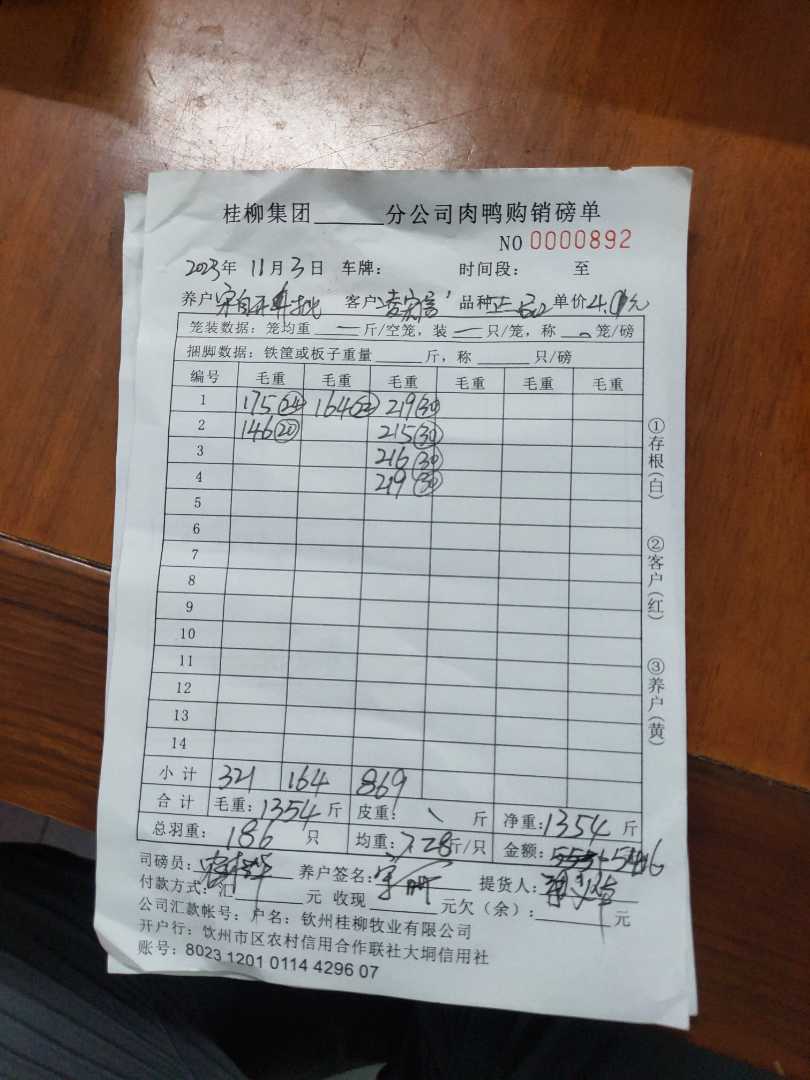 桂柳集团______分公司肉鸭购销磅单
NO 0000892
2023年 11月3日 车牌: 时间段: 至
养户: 客户: 品种 正 单价4.0元
笼装数据: 笼均重 — 斤/空笼, 装 — 只/笼, 称 笼/磅
捆脚数据: 铁筐或板子重量______斤, 称______只/磅
编号 毛重 毛重 毛重 毛重 毛重 毛重
1 175(24) 164(22) 219(30)
2 146(20) 215(30)
3 216(30)
4 219(30)
5
6
7
8
9
10
11
12
13
14
小计 321 164 869
合计 毛重:1354斤 皮重: \ 斤 净重:1354斤
总羽重: 186 只 均重:7.28斤/只 金额: 5416
司磅员: 养户签名: 提货人:
付款方式: 汇______元 收现______元欠(余):______元
公司汇款帐号: 户名: 钦州桂柳牧业有限公司
开户行: 钦州市区农村信用合作联社大垌信用社
账号: 8023 1201 0114 4296 07
①存根(白)
②客户(红)
③养户(黄)